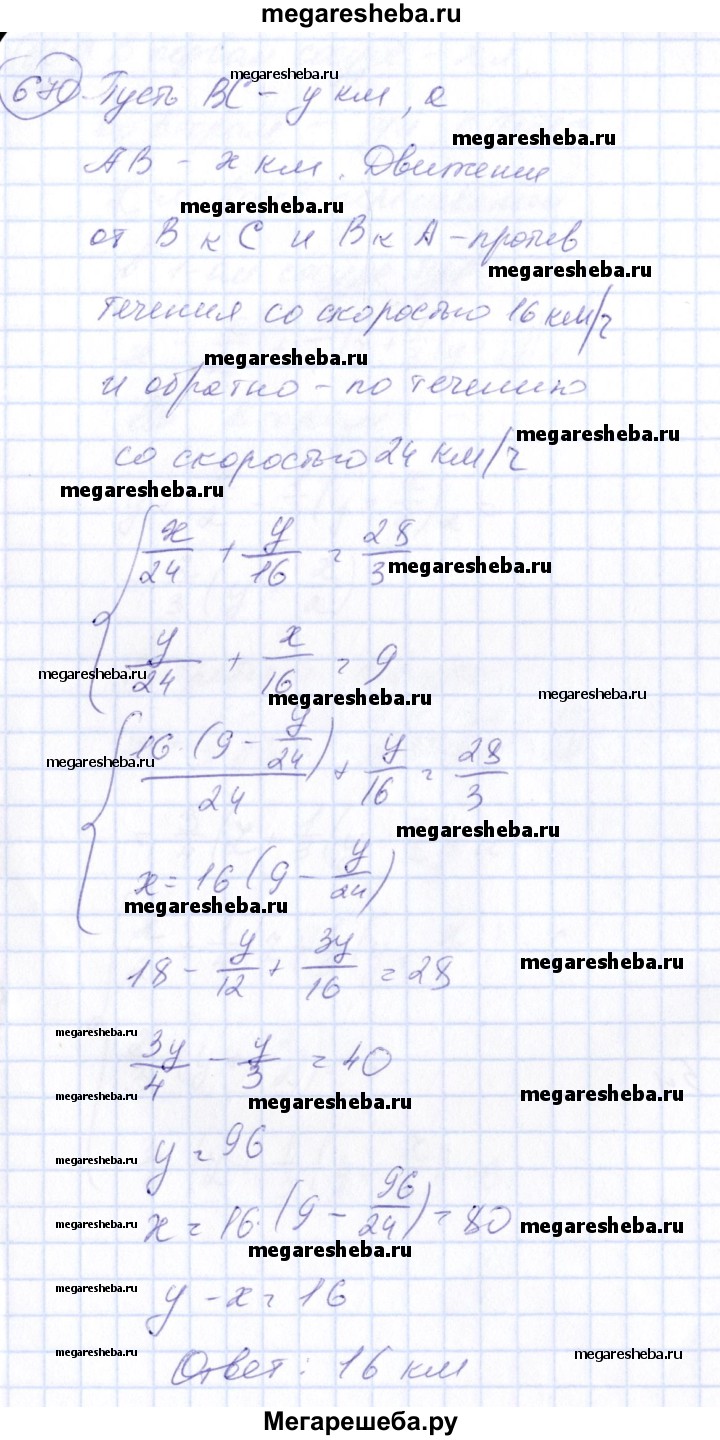 megaresheba.ru
megaresheba.ru
670 Пусть BC - y км, а
megaresheba.ru
AB - x км. Движение
megaresheba.ru
от B к C и B к A - против
megaresheba.ru
течения со скоростью 16 км/ч
megaresheba.ru
и обратно - по течению
megaresheba.ru
со скоростью 24 км/ч
megaresheba.ru
x/24 + y/16 = 28/3
megaresheba.ru
y/24 + x/16 = 9
megaresheba.ru megaresheba.ru megaresheba.ru
16·(9 - y/24)/24 + y/16 = 28/3
megaresheba.ru
megaresheba.ru
x = 16(9 - y/24)
megaresheba.ru
18 - y/12 + 3y/16 = 28
megaresheba.ru
megaresheba.ru
3y/4 - y/3 = 40
megaresheba.ru megaresheba.ru megaresheba.ru
y = 96
megaresheba.ru
x = 16·(9 - 96/24) = 80
megaresheba.ru megaresheba.ru
megaresheba.ru
y - x = 16
megaresheba.ru
Ответ: 16 км
megaresheba.ru megaresheba.ru
Мегарешеба.ру